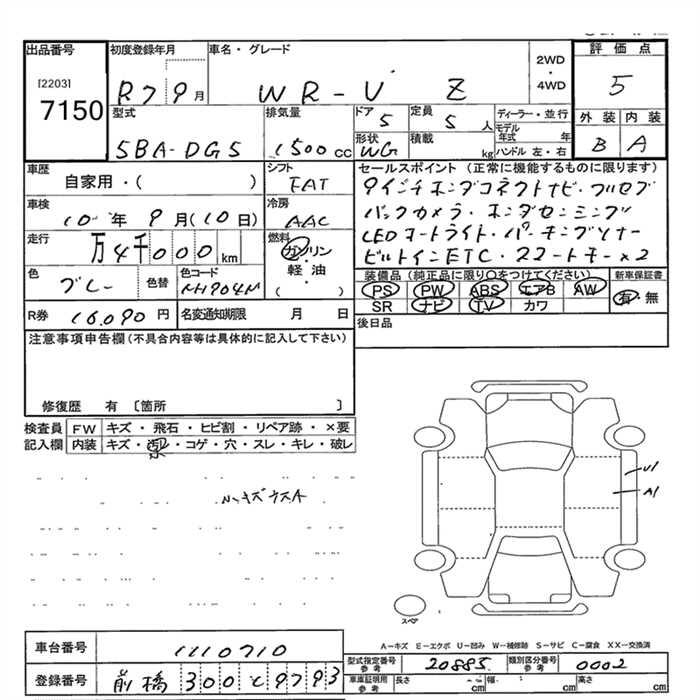 出品番号
[2203]
7150
初度登録年月
R7 9月
車名・グレード
WR-V Z
2WD
・
4WD
評価点
5
外装 内装
B A
型式
5BA-DG5
排気量
1500cc
ドア
5
定員
5人
形状
WG
積載
kg
ディーラー・並行
モデル年式 年
ハンドル 左・右
車歴
自家用・( )
シフト
FAT
車検
10年 9月(10日)
冷房
AAC
走行
万4千000km
燃料
ガソリン
・
軽油
・
( )
色
グレー
色替
色コード
NH904M
R券 16,090円
名変通知期限 月 日
セールスポイント (正常に機能するものに限ります)
9インチホンダコネクトナビ・フルセグ
バックカメラ・ホンダセンシング
LEDオートライト・パーキングソナー
ビルトインETC・スマートキー×2
装備品 (純正品に限り○をつけてください)
PS PW ABS エアB AW
SR ナビ TV カワ
新車保証書
有・無
後日品
注意事項申告欄(不具合内容等は具体的に記入して下さい)
修復歴 有 〔箇所 〕
検査員記入欄
FW キズ・飛石・ヒビ割・リペア跡・×要
内装 キズ・汚レ・コゲ・穴・スレ・キレ・破レ
U1
A1
スペア
A-キズ E-エクボ U-凹み W-補修跡 S-サビ C-腐食 XX-交換済
車台番号 1110710
登録番号 前橋 300 と 9793
型式指定番号 参考 20885
類別区分番号 参考 0002
車庫証明用 参考 長さ cm 幅 cm 高さ cm